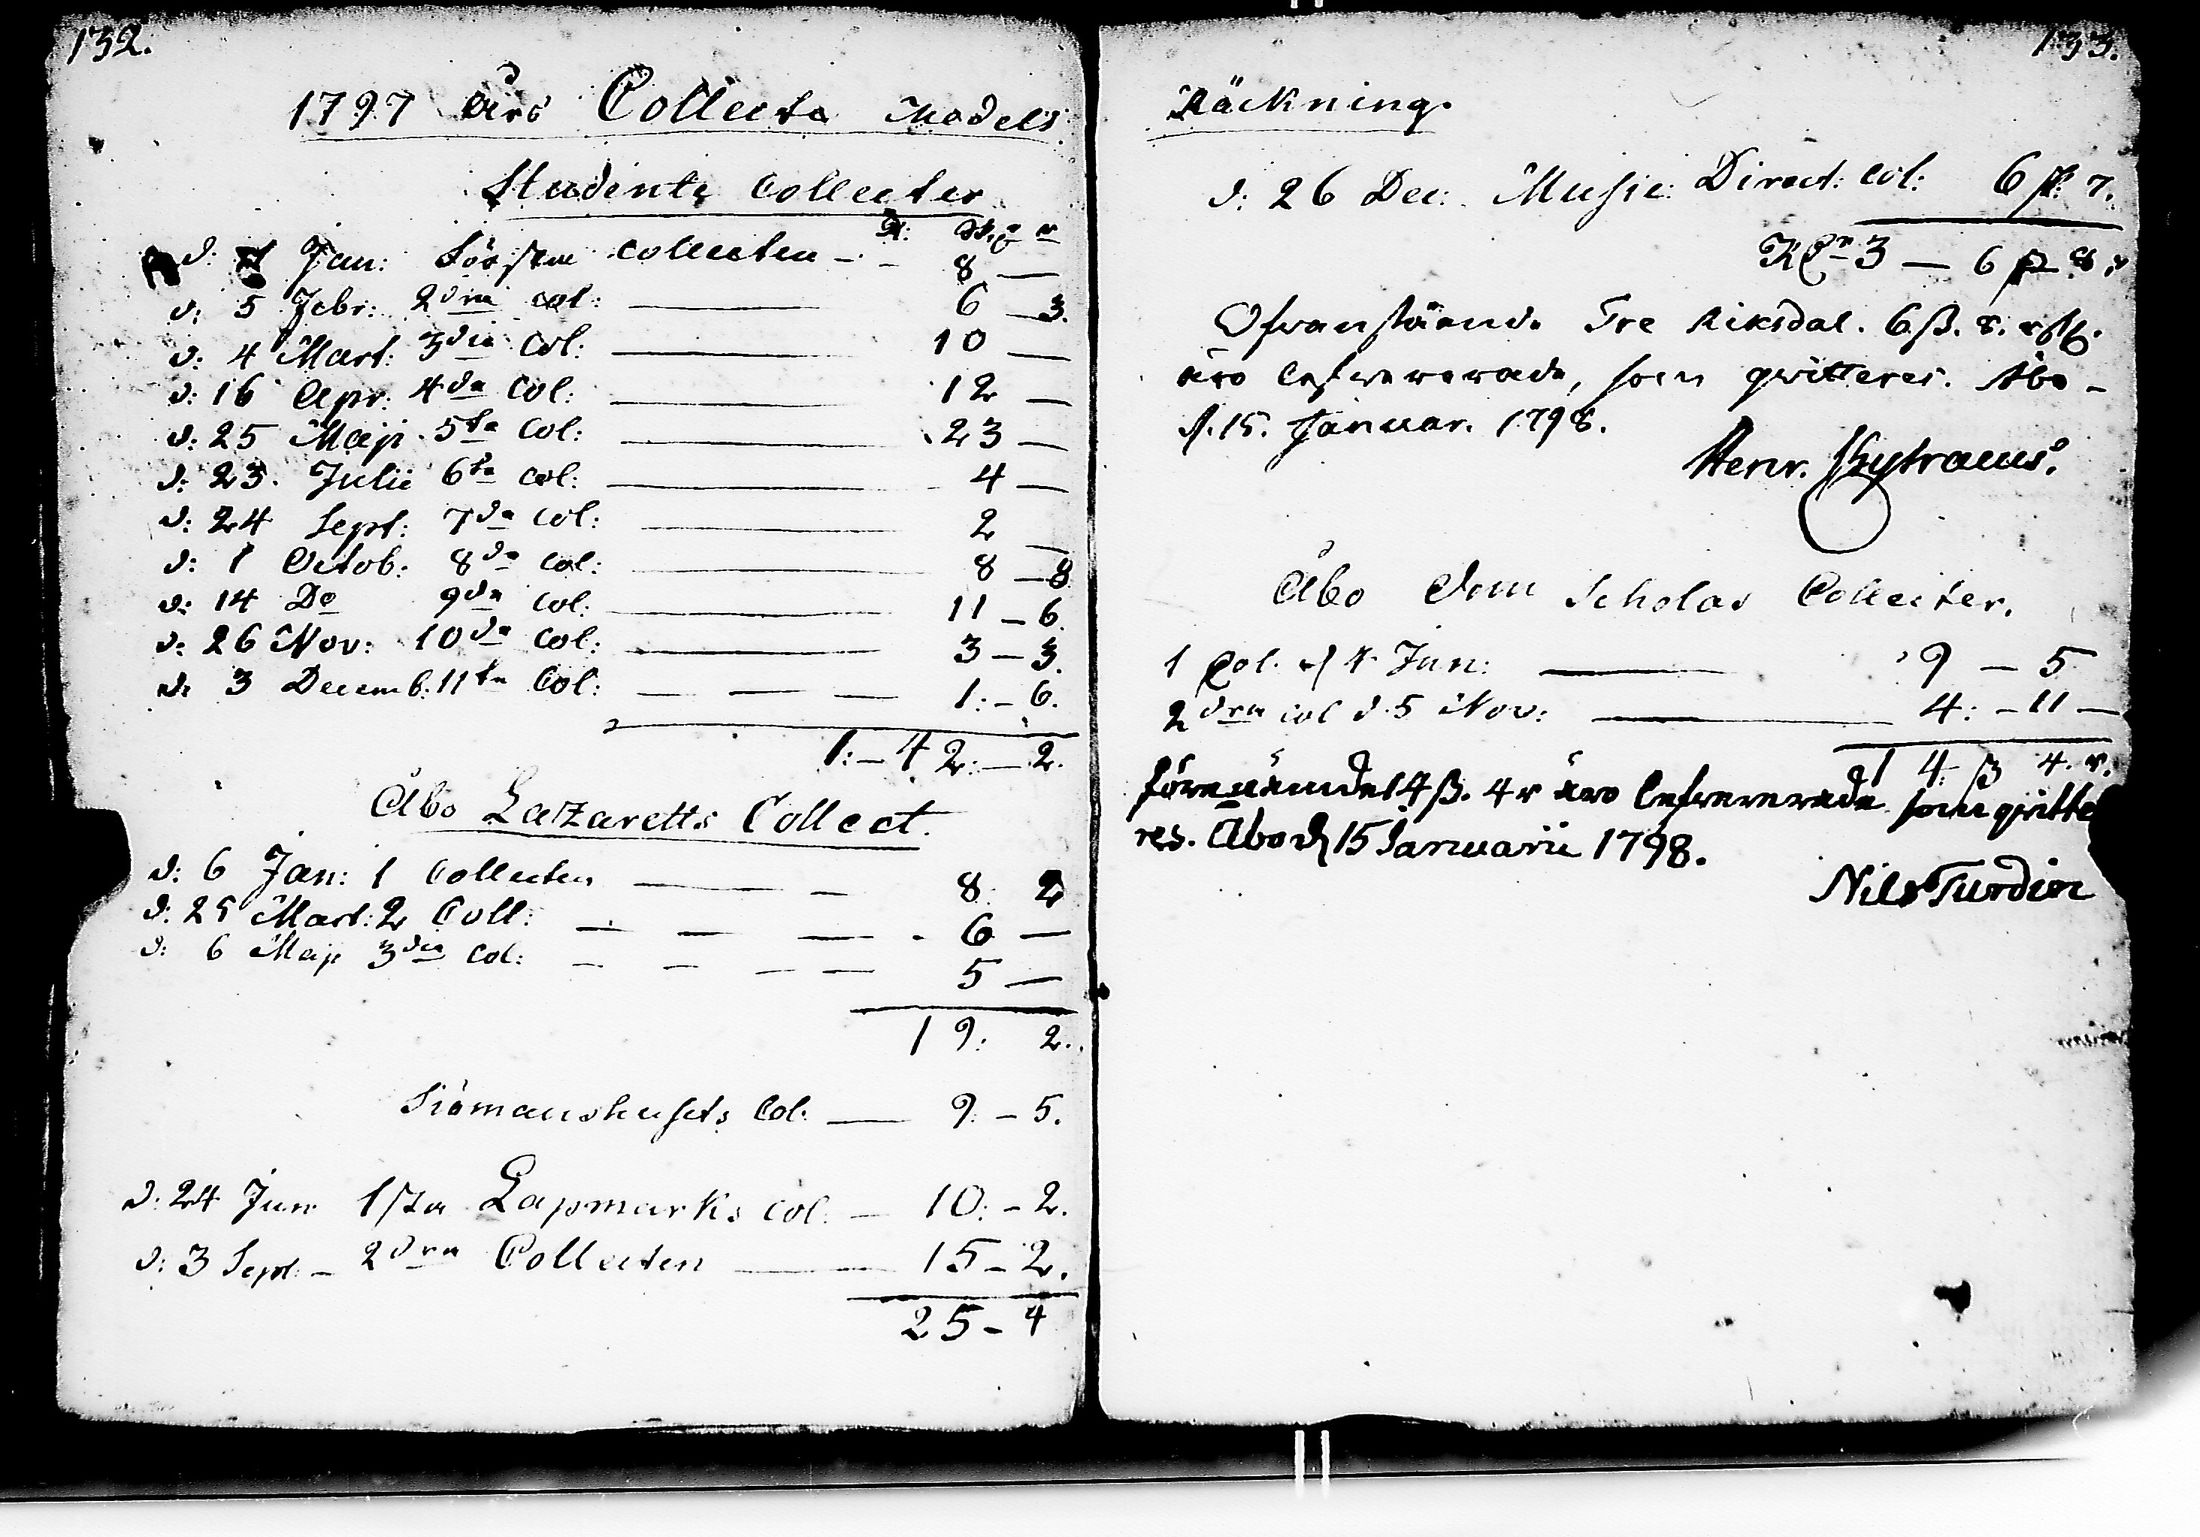 132.
1797 Års Collecte Medels
Studente Collecter
R: sk. r
d: Jan: Första Collecten - - 8 —
d: 5 Febr: 2dra Col: — 6 — 3.
d: 4 Mart: 3dia Col: — 10 —
d: 16 Apr: 4da Col: — 12 —
d: 25 Maji 5ta Col: — 23 —
d: 23. Julii 6ta Col: — 4 —
d: 24 Sept: 7da Col: — 2 —
d: 1 Octob: 8da Col: — 8 — 8
d: 14 Do 9da Col: — 11 — 6.
d: 26 Nov: 10da Col: — 3 — 3.
d: 3 Decemb: 11ta Col: — — — 1: — 6.
1: — 42: — 2.
Åbo Lazaretts Collect.
d: 6 Jan: 1 Collecten — — 8: 2
d: 25 Mart: 2 Coll: — — — - 6 —
d: 6 Maji 3dia Col: — — — — 5 —
19: 2.
Siömanshusets Col: — 9: — 5.
d: 24 Jun 1sta Lapmarks Col: — 10: — 2.
d: 3 Sept: — 2dra Collecten — 15 — 2.
25 — 4
133.
Räckning.
d: 26 Dec: Music: Direct: Col: 6 ß: 7.
3 — 6 ß 8 r
Ofvanstående Tre Riksdal. 6 ß. 8. r
äro lefvererade, som qvitteres. Åbo -
d. 15. Januar. 1798.
Henr.
Åbo Dom Scholas Collecter.
1 Col. d 1 Jan: — 9 — 5
2dra Col d. 5 Nov: — 4: — 11 —
14 ß 4. r.
förenämde 14 ß. 4 r äro lefvererade som qvitte
res. Åbo d 15 Januarii 1798.
Nils Turdin